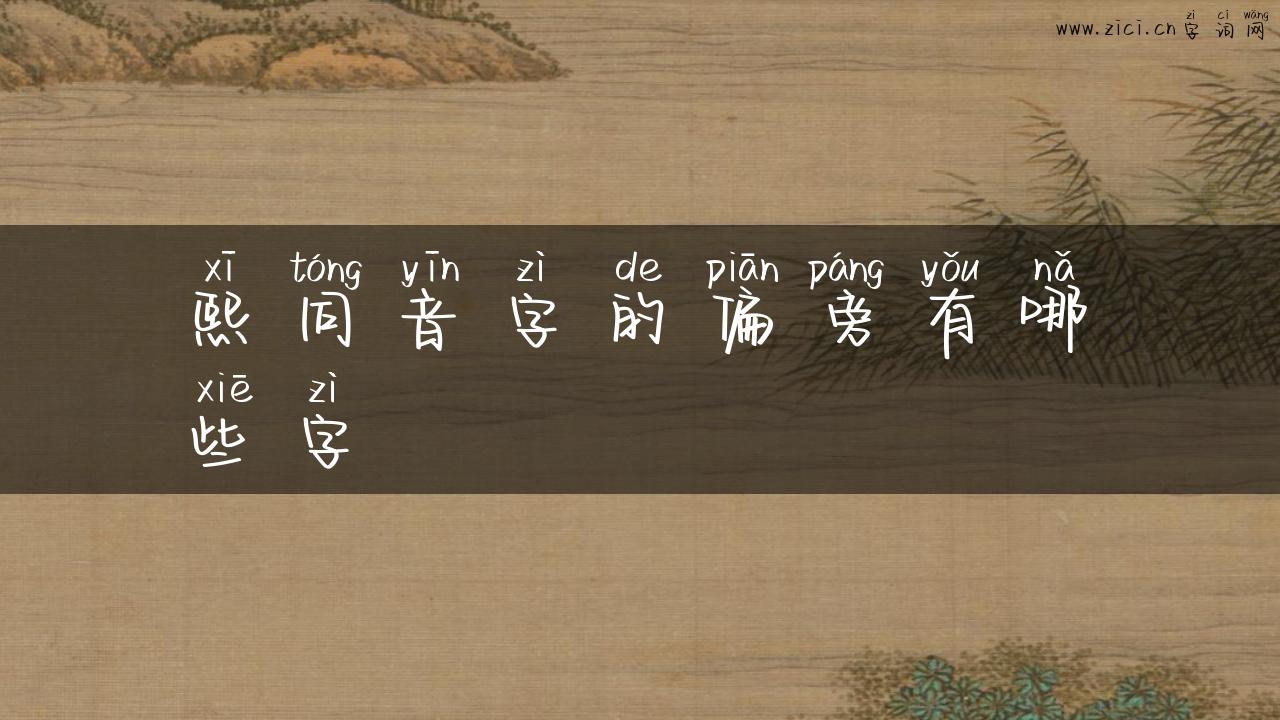 www.zici.cn 字词网
zì cí wǎng
xī tóng yīn zì de piān páng yǒu nǎ
熙同音字的偏旁有哪
xiē zì
些字